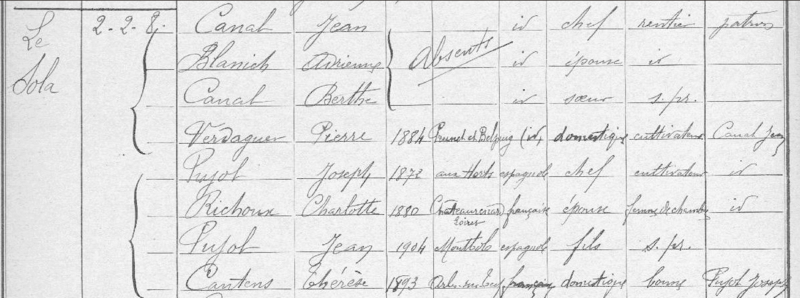 Le Sola 2. 2. 8. Canal Jean id chef rentier patron
Blanich Adrienne Absents id épouse id
Canal Berthe id sœur s. pr.
Verdaguer Pierre 1884 Prunet et Belpuig (id) domestique cultivateur Canal Jean
Pujol Joseph 1872 espagnol chef cultivateur id
Richoux Charlotte 1880 française épouse femme de chambre id
Pujol Jean 1904 Montbolo espagnol fils s. pr.
Cantens Thérèse 1893 française domestique bonne Pujol Joseph